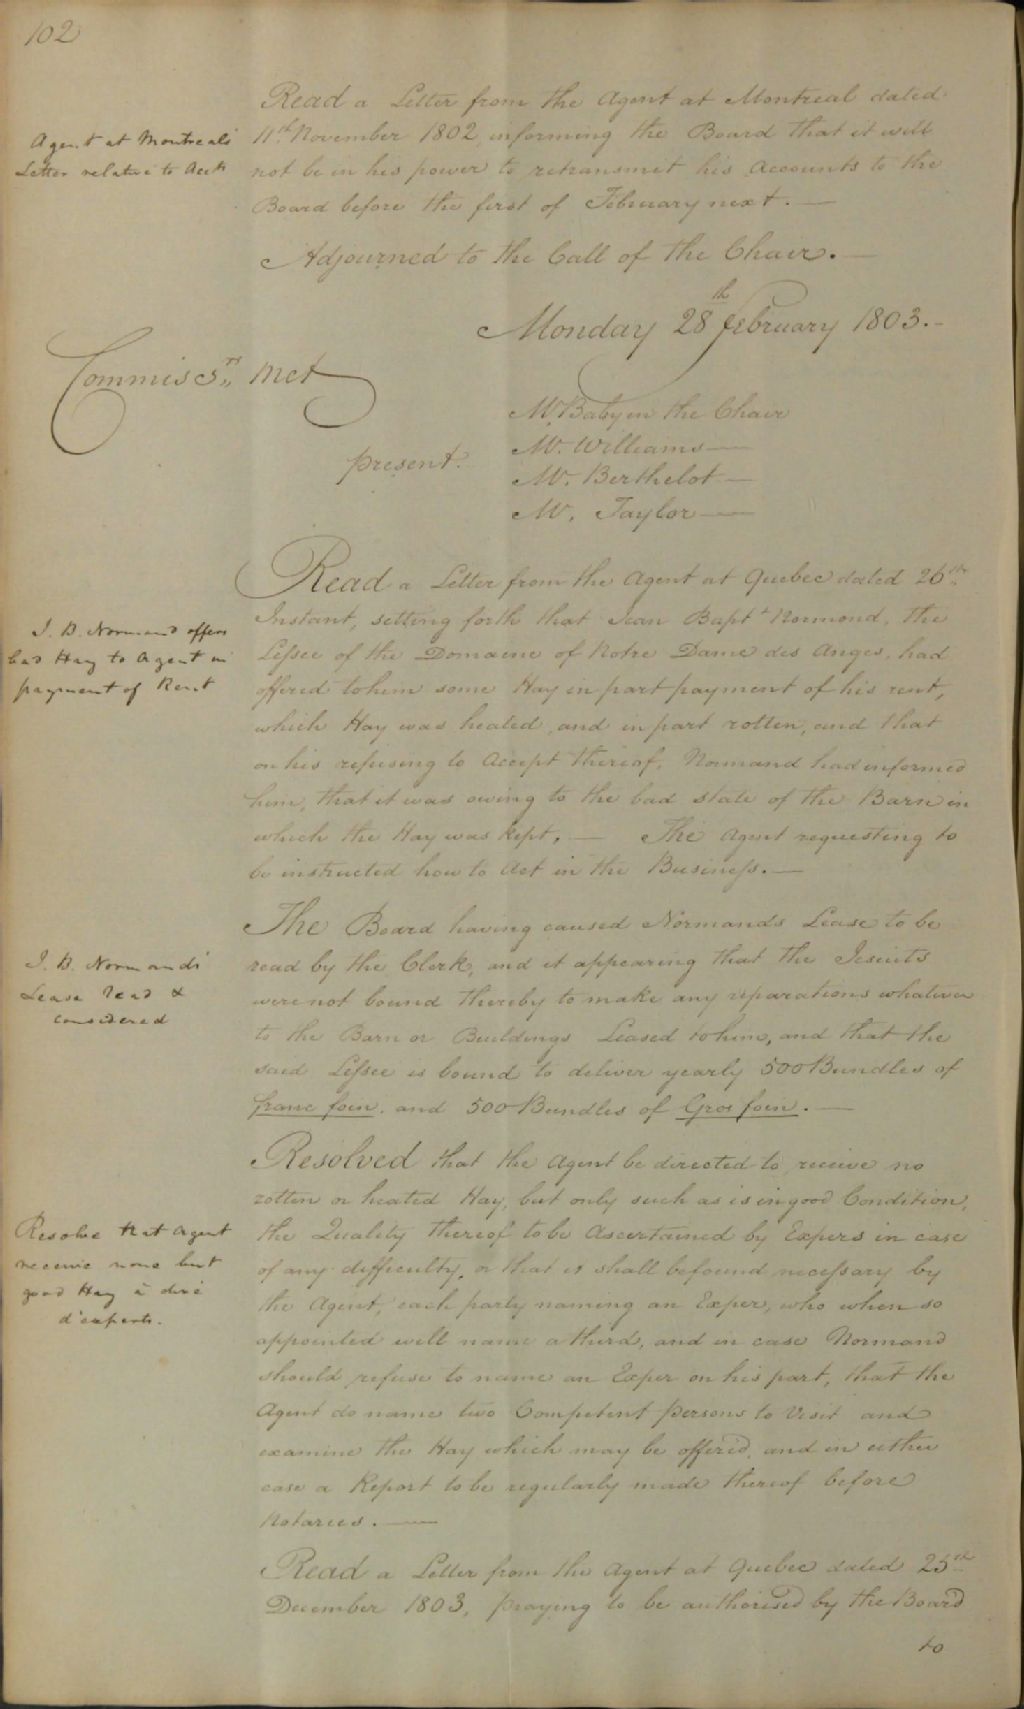 102
Agent at Montreal's
Letter relative to Accts
Read a Letter from the Agent at Montreal dated
11th November 1802, informing the Board that it will
not be in his power to retransmit his Accounts to the
Board before the first of February next. —
Adjourned to the Call of the Chair. —
Monday 28th February 1803. -
Commissrs Met
present.
Mr. Baby in the Chair
Mr. Williams —
Mr. Berthelot —
Mr. Taylor —
J. B. Normand offers
bad Hay to Agent in
payment of Rent
Read a Letter from the Agent at Quebec dated 26th
Instant, setting forth that Jean Bapte Normond, the
Lessee of the Domaine of Notre Dame des Anges, had
offered to him some Hay in part payment of his rent,
which Hay was heated, and in part rotten, and that
on his refusing to Accept thereof, Normand had informed
him, that it was owing to the bad state of the Barn in
which the Hay was kept, — The Agent requesting to
be instructed how to Act in the Business. —
J. B. Normands'
Lease read &
considered
The Board having caused Normands Lease to be
read by the Clerk, and it appearing that the Jesuits
were not bound thereby to make any reparations whatever
to the Barn or Buildings Leased to him, and that the
said Lessee is bound to deliver yearly 500 Bundles of
franc foin, and 500 Bundles of Gros foin. —
Resolve that Agent
receive none but
good Hay à dire
d'experts.
Resolved that the Agent be directed to receive no
rotten or heated Hay, but only such as is in good Condition,
the Quality thereof to be Ascertained by Expers in case
of any difficulty, or that it shall be found necessary by
the Agent, each party naming an Exper, who when so
appointed will name a third, and in case Normand
should refuse to name an Exper on his part, that the
Agent do name two Competent persons to Visit and
examine the Hay which may be offer'd, and in either
case a Report to be regularly made thereof before
Notaries. —
Read a Letter from the Agent at Quebec dated 25th
December 1803, praying to be authorised by the Board
to